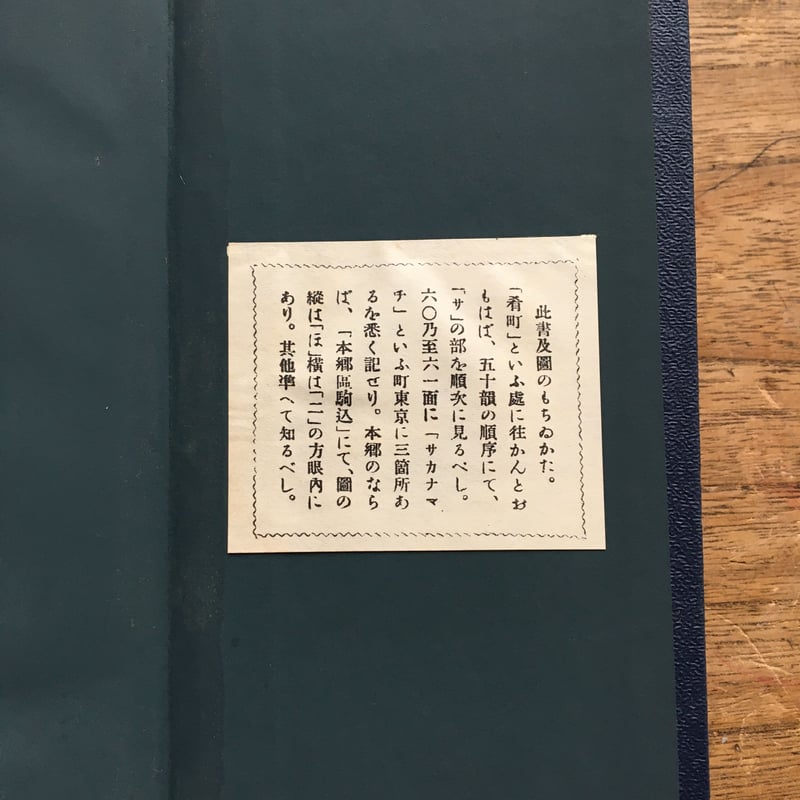 此書及圖のもちゐかた。
「肴町」といふ處に往かんとお
もはば、五十韻の順序にて、
「サ」の部を順次に見るべし。
六〇乃至六一面に「サカナマ
チ」といふ町東京に三箇所あ
るを悉く記せり。本郷のなら
ば、「本郷區駒込」にて、圖の
縱は「ほ」横は「二」の方眼内に
あり。其他準へて知るべし。